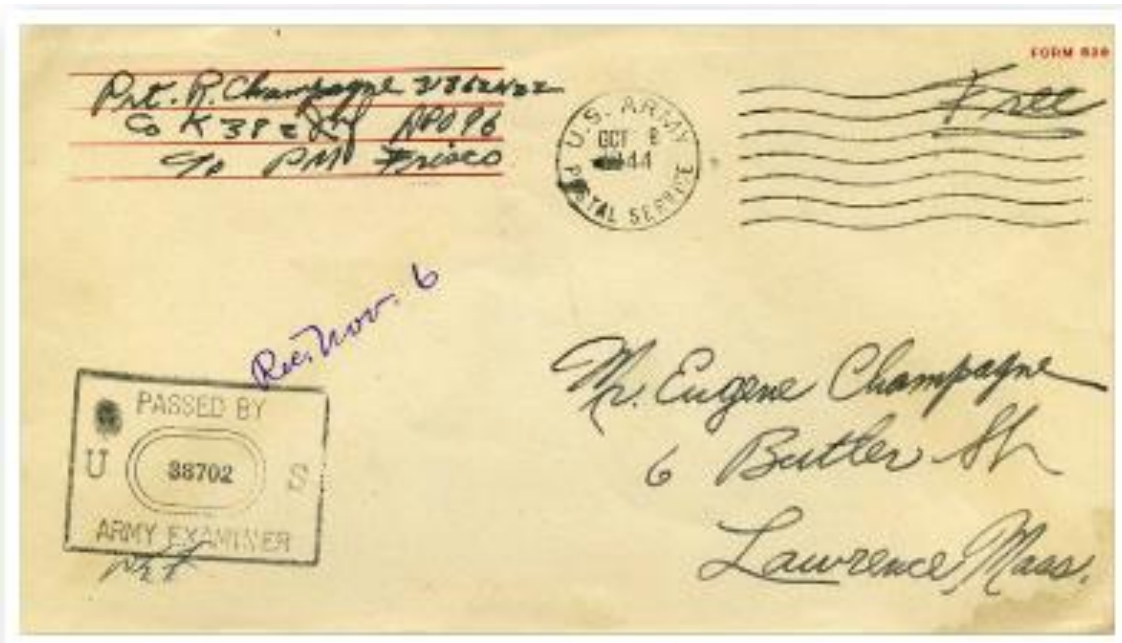 FORM
Pvt. R. Champagne
Co K 382 APO 96
c/o PM Frisco
U.S. ARMY
OCT
1944
POSTAL SERVICE
Free
Rec. Nov. 6
PASSED BY
U 38702 S
ARMY EXAMINER
Mr. Eugene Champagne
6 Butler St
Lawrence, Mass.